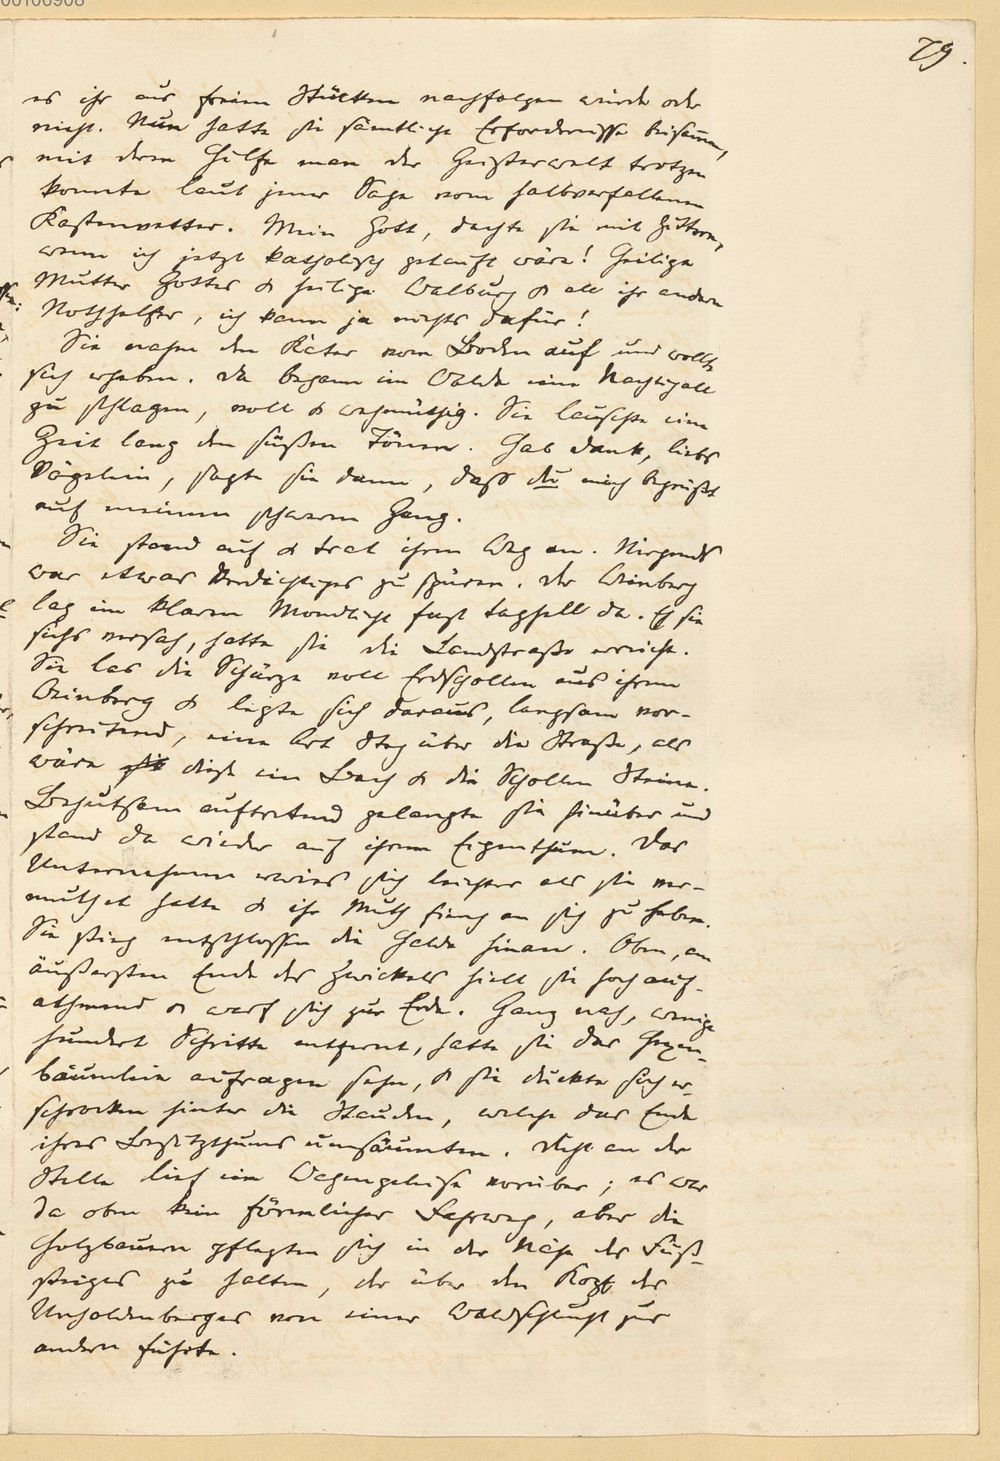 00106908
79.
es ihr aus freien Stücken nachfolgen würde oder
nicht. Nun hatte sie sämtliche Erfordernisse beisamen,
mit deren Hülfe man der Geisterwelt trotzen
konnte laut jener Sage vom halbverfallenen
Kastenvetter. Mein Gott, dachte sie mit Zittern,
wenn ich jetzt katholisch getauft wäre! Heilige
Mutter Gottes & heilige Walburg & all ihr andern
Nothhelfer, ich kann ja nichts dafür!
Sie nahm den Kater vom Boden auf und wollte
sich erheben. Da begann im Walde eine Nachtigall
zu schlagen, voll & wehmüthig. Sie lauschte eine
Zeit lang den süßen Tönen. Hab Dank, liebs
Vögelein, sagte sie dann, daß du mich begrüßt
auf meinem schweren Gang.
Sie stand auf & trat ihren Weg an. Nirgends
war etwas Verdächtiges zu spüren. Der Weinberg
lag im klaren Mondlicht fast taghell da. Eh sie
sichs versah, hatte sie die Landstraße erreicht.
Sie las die Schürze voll Erdschollen aus ihrem
Weinberg & legte sich daraus, langsam vor-
schreitend, eine Art Steg über die Straße, als
wäre dieß ein Bach & die Schollen Steine.
Behutsam auftretend gelangte sie hinüber und
stand da wieder auf ihrem Eigenthum. Das
Unternehmen erwies sich leichter als sie ver-
muthet hatte & ihr Muth fieng an sich zu heben.
Sie stieg entschlossen die Halde hinan. Oben, am
äußersten Ende des Zwickels hielt sie hoch auf-
athmend & warf sich zur Erde. Ganz nah, wenige
hundert Schritte entfernt, hatte sie das Hexen-
bäumlein aufragen sehn, & sie duckte sich er-
schrocken hinter die Stauden, welche das Ende
ihres Besitzthums umsäumten. Dicht an der
Stelle lief ein Wagengeleise vorüber; es war
da oben kein förmlicher Fahrweg, aber die
Holzbauern pflegten sich in der Nähe des Fuß-
steiges zu halten, der über den Kopf des
Unholdenberges von einer Waldschlucht zur
andern führte.